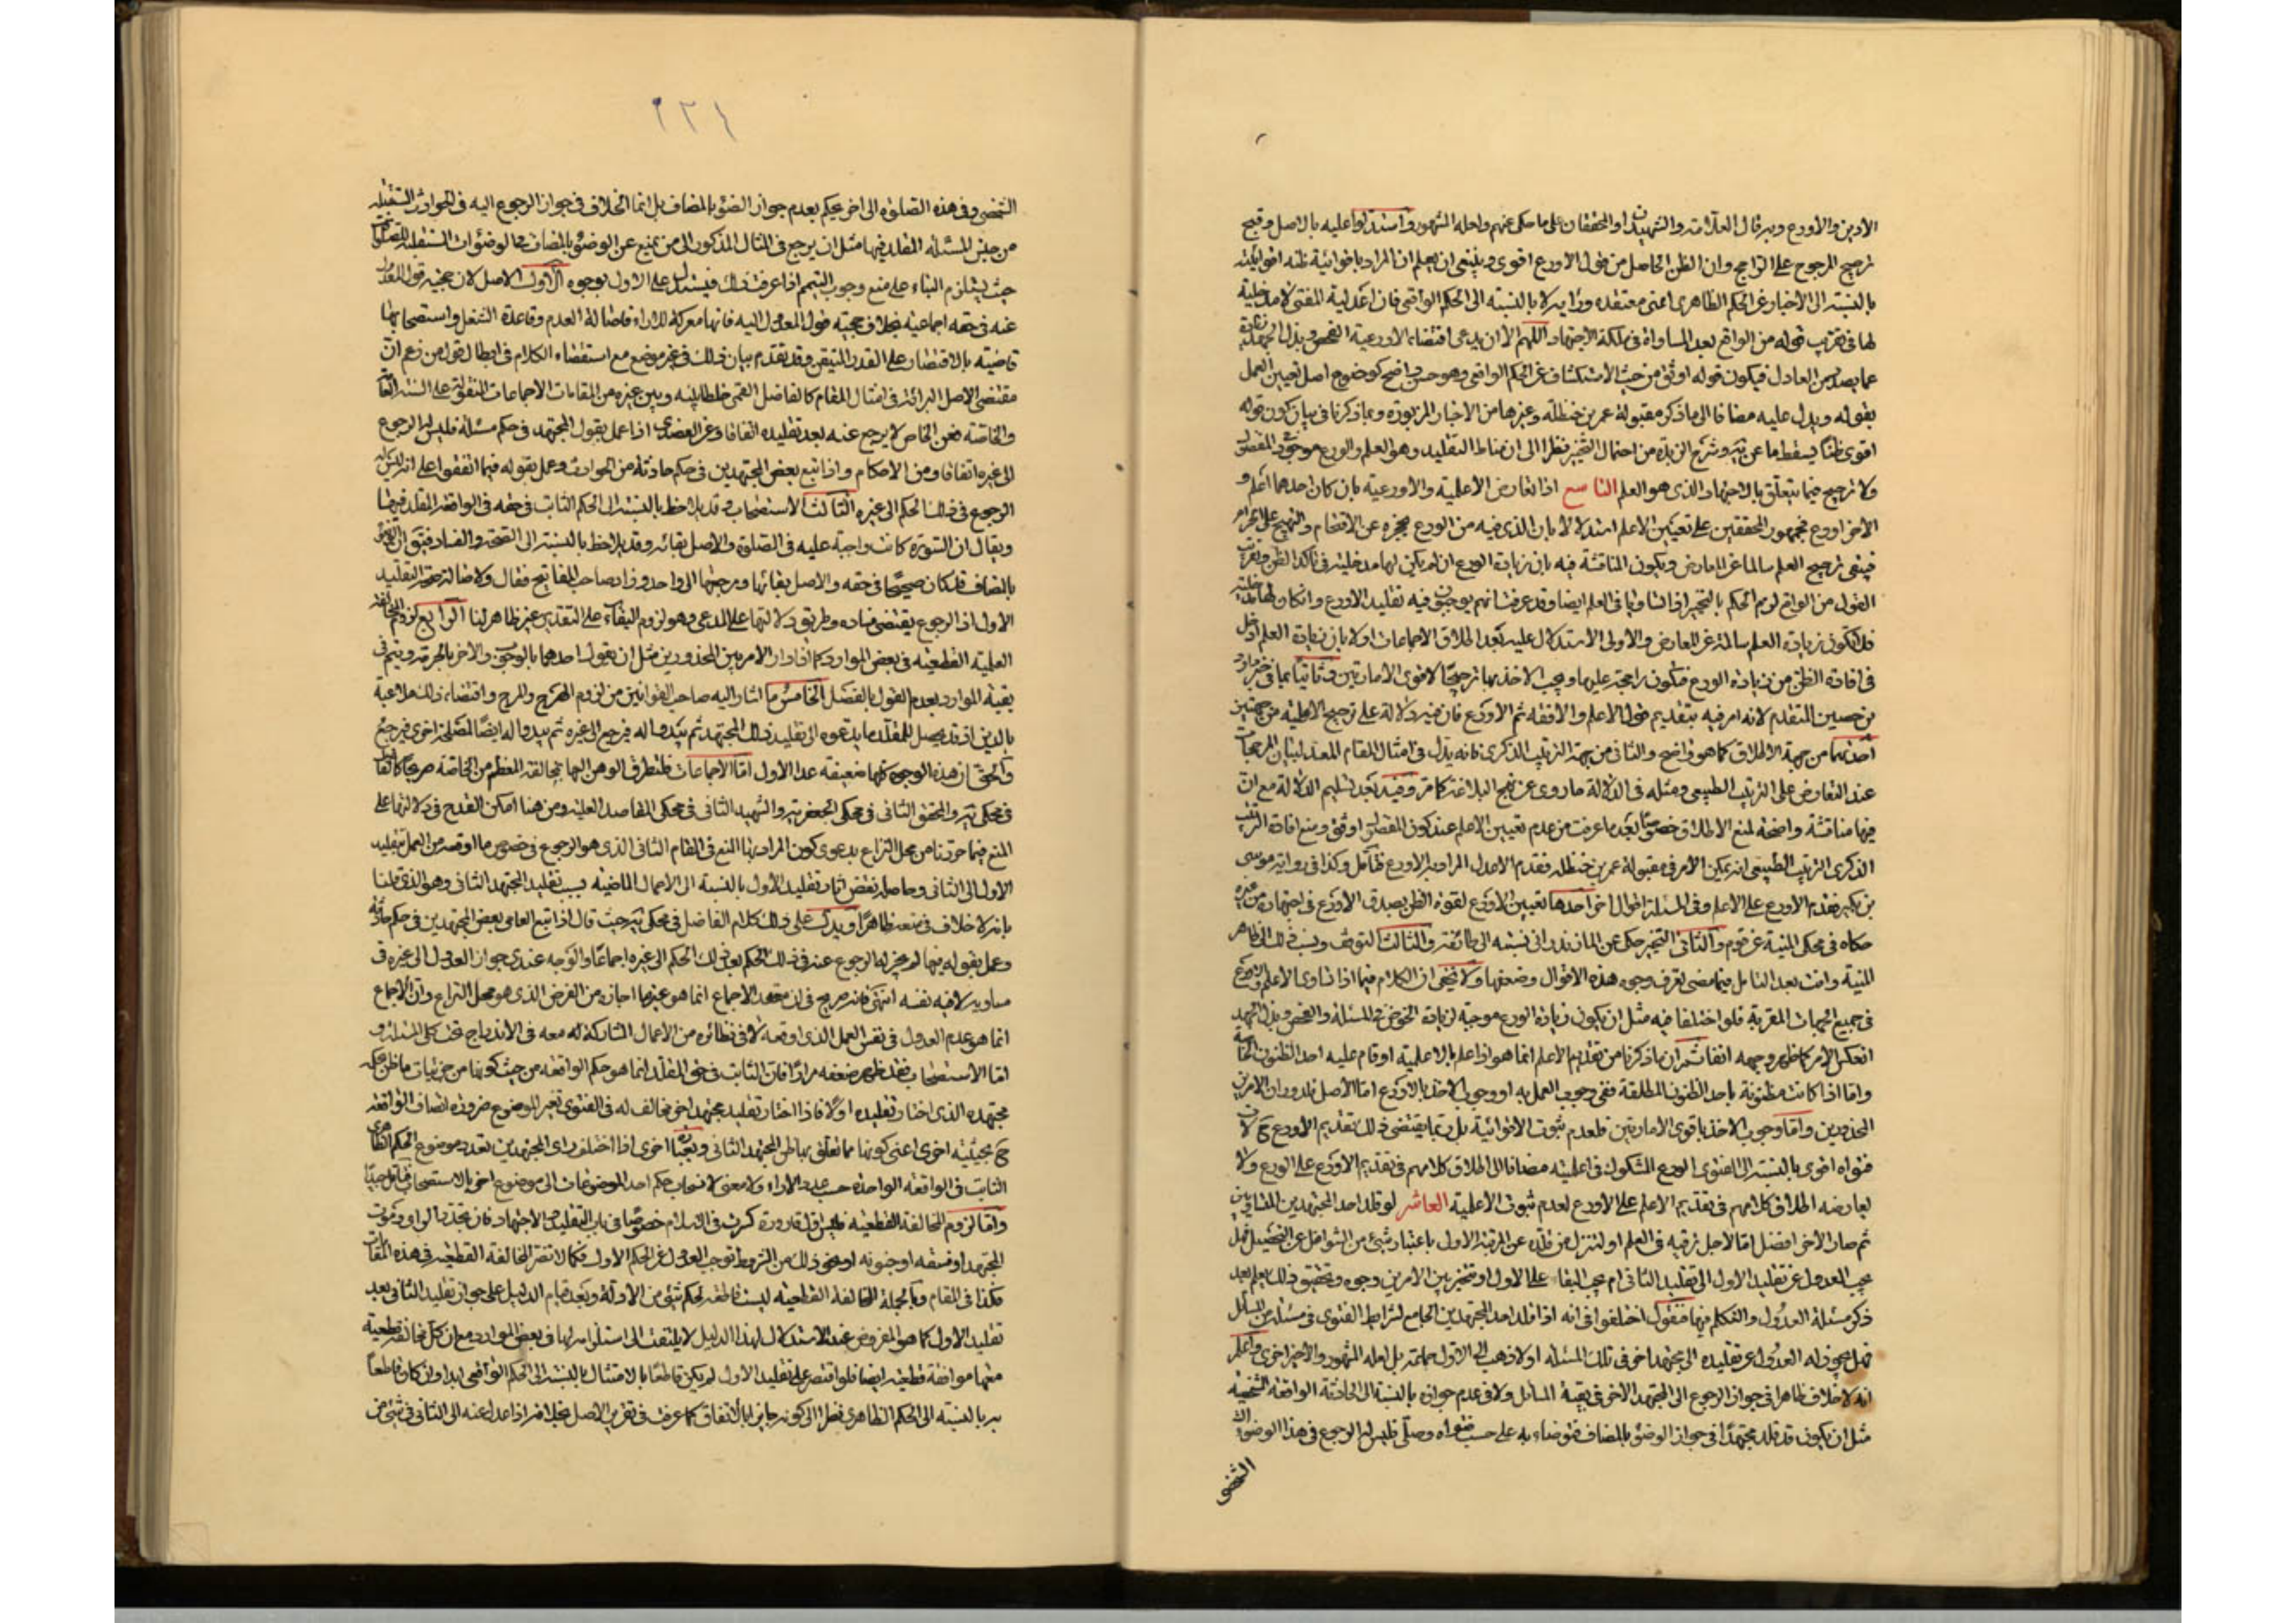 الأدين والأورع وبه قال العلامة والشهيدان والمحققان على ما حكى عنهم ولعله المشهور واستدلوا عليه بالاصل وقبح
ترجيح المرجوح على الراجح وان الظن الحاصل من قول الاورع اقوى وينبغى ان يعلم ان المراد باقوائية ظنه اقوائيته
بالنسبة الى الأخبار عن الحكم الظاهرى اعنى معتقده ورأيه لا بالنسبة الى الحكم الواقعى فان اعدلية المفتى لا مدخلية
لها فى تقريب قوله من الواقع بعد المساواة فى ملكة الاجتهاد اللهم الا ان يدعى اقتضاء الاورعية الفحص وبذل الجهد زيادة
عما يصدر من العادل فيكون قوله اوثق من حيث الاستكشاف عن الحكم الواقعى وهو حسن واضح كوضوح اصل تعيين العمل
بقوله ويدل عليه مضافا الى ما ذكر مقبولة عمر بن حنظلة وغيرها من الاخبار المزبورة وبما ذكرنا فى بيان كون قوله
اقوى ظنا يسقط ما عن وشرح الزبدة من احتمال التخيير نظرا الى ان مناط التقليد وهو العلم والورع موجود فى المفضول
ولا ترجيح فيما يتعلق بالاجتهاد الذى هو العلم التاسع اذا تعارض الاعلمية والاورعية بان كان احدهما اعلم و
الآخر اورع فجمهور المحققين على تعيين الاعلم استدلالا بان الذى فيه من الورع يحجزه عن الاقتحام والتهجم على الحرام
فيبقى ترجيح العلم سالما عن المعارض ويكون المناقشة فيه بان زيادة الورع ان لم يكن لها مدخلية فى تأكد الظن وتقريب
القول من الواقع لزم الحكم بالتخيير اذا تساويا فى العلم ايضا وقد عرفت انهم يوجبون فيه تقليد الاورع وان كان لها مدخلية
فلا تكون زيادة العلم سالمة عن المعارض والاولى الاستدلال عليه بعد اطلاق الاجماعات اولا بان زيادة العلم ادخل
فى افادة الظن من زيادة الورع فتكون راجحة عليها ويجب الاخذ بها ترجيحا لاقوى الامارتين وثانيا بما فى خبر داود
بن حصين المتقدم لانه امر فيه بتقديم قول الاعلم والافقه ثم الاورع فان فيه دلالة على ترجيح الاعلمية من جهتين
احدهما من جهة الاطلاق كما هو واضح والثانى من جهة الترتيب الذكرى فانه يدل فى امثال المقام المعد لبيان المرجحات
عند التعارض على الترتيب الطبيعى ومثله فى الدلالة ما روى عن نهج البلاغة كما مر وفيه بعد تسليم الدلالة مع ان
فيها مناقشة واضحة لمنع الاطلاق خصوصا بعد ما عرفت من عدم تعيين الاعلم عند كون المفضول اوثق ومنع افادة الترتيب
الذكرى الترتيب الطبيعى انه يمكن الأمر فى مقبولة عمر بن حنظلة فقدم الاعدل المراد به الاورع فتأمل وكذا فى رواية موسى
بن بكير فقدم الاورع على الاعلم وفى المسئلة اقوال اخر احدها تعيين الاورع لقوة الظن بصدق الاورع فى اجتهاده من غيره
حكاه فى محكى المنية عن قوم والثانى التخيير حكى عن المازندرانى نسبته الى طائفة والثالث التوقف ونسب ذلك الى ظاهر
المنية وانت بعد التامل فيما مضى تعرف وجوه هذه الاقوال وضعفها ولا يخفى ان الكلام فيما اذا تساوى الاعلم والاورع
فى جميع الجهات المقربة فلو اختلفا فيه مثل ان يكون زيادة الورع موجبة لزيادة الخوض فى المسئلة والفحص وبذل الجهد
انعكس الامر كما ظهر وجهه انفا ثم ان ما ذكرنا من تقديم الاعلم انما هو اذا علم بالاعلمية او قام عليه احد الظنون الخاصة
واما اذا كانت مظنونة باحد الظنون المطلقة ففى وجوب العمل به او وجوب الاخذ بالاورع اما الأصل فلدوران الامر بين
المحذورين واما وجوب الاخذ باقوى الامارتين فلعدم ثبوت الاقوائية بل ربما يقتضى ذلك تقديم الأورع ح لان
فتواه اقوى بالنسبة الى الفتوى الورع المشكوك فى اعلميته مضافا الى اطلاق كلامهم فى تقديم الاورع على الورع ولا
يعارضه اطلاق كلامهم فى تقديم الاعلم على الاورع لعدم ثبوت الاعلمية العاشر لو قلد احد المجتهدين المتساويين
ثم صار الآخر افضل اما لاجل ترقيه فى العلم او لتنزل من قلده عن المرتبة الاولى باعتبار شىء من الشواغل عن التحصيل فهل
يجب العدول عن تقليد الاول الى تقليد الثانى ام يجب البقاء على الاول او يتخير بين الامرين وجوه وتحقيق ذلك يعلم بعد
ذكر مسئلة العدول والتكلم فيها فنقول اختلفوا فى انه اذا قلد احد المجتهدين الجامع لشرايط الفتوى فى مسئلة من المسائل
فهل يجوز له العدول عن تقليده الى مجتهد اخر فى تلك المسئلة او لا ذهب الى الاول جماعة بل لعله المشهور والاخير اخرى واعلم
انه لا خلاف ظاهرا فى جواز الرجوع الى المجتهد الآخر فى بقية المسائل ولا فى عدم جوازه بالنسبة الى الحادثة الواقعة الشخصية
مثل ان يكون قد قلد مجتهدا فى جواز الوضوء بالمضاف فتوضاء به على حسب فتواه وصلى فليس له الرجوع فى هذا الوضوء
الشخصى
٢٣٤
الشخصى وفى هذه الصلوة الى اخر يحكم بعدم جواز الوضوء بالمضاف بل انما الخلاف فى جواز الرجوع اليه فى الحوادث المستقبلة
من جنس المسئلة المقلد فيها مثل ان يرجع فى المثال المذكور الى من يمنع عن الوضوء بالمضاف فى الوضوئات المستقبلة للصلوة
حيث يستلزم البناء على منع وجوب التيمم اذا عرفت ذلك فيستدل على الاول بوجوه الاول الاصل لان حجية قول المعدول
عنه فى حقه اجماعية بخلاف حجية قول المعدول اليه فانها معركة للاراء فاصالة العدم وقاعدة الشغل واستصحابها
قاضية بالاقتصار على القدر المتيقن وقد تقدم بيان ذلك فى غير موضع مع استقصاء الكلام فى ابطال قول من زعم ان
مقتضى الاصل البرائة فى امثال المقام كالفاضل القمى خلطا بينه وبين غيره من المقامات الاجماعات المنقولة على السنة العامة
والخاصة فعن الخاص لا يرجع عنه بعد تقليده اتفاقا وعن العضدى اذا عمل بقول المجتهد فى حكم مسئلة فليس له الرجوع
الى غيره اتفاقا ومن الاحكام واذا اتبع بعض المجتهدين فى حكم حادثة من الحوادث وعمل بقوله فيها اتفقوا على انه ليس له
الرجوع فى ذلك الحكم الى غيره الثالث الاستصحاب وقد يلاحظ بالنسبة الى الحكم الثابت فى حقه فى الواقعة المقلد فيها
ويقال ان السورة كانت واجبة عليه فى الصلوة والاصل بقائه وقد يلاحظ بالنسبة الى الصحة والفساد فيقال ان الوضوء
بالمضاف قد كان صحيحا فى حقه والاصل بقائها ومرجعها الى واحد وزاد صاحب المفاتيح فقال ولاصالة صحة التقليد
الاول اذ الرجوع يقتضى فساده وطريق دلالتها على المدعى وهو لزوم البقاء على التقدير غير ظاهر لنا الرابع لزوم المخالفة
العملية القطعية فى بعض الموارد كما اذا دار الامر بين المحذورين مثل ان يقول احدهما بالوجوب والآخر بالحرمة ويتم فى
بقية الموارد بعدم القول بالفصل الخامس ما اشار اليه صاحب القوانين من لزوم الهرج والمرج واقتضاء ذلك ملاعبة
بالدين اذ قد يحصل للمقلد ما يدعوه الى تقليد ذلك المجتهد ثم يبدو له فيرجع الى غيره ثم يبدو له ايضا لمصلحة اخرى فيرجع
والحق ان هذه الوجوه كلها ضعيفة عدا الاول اما الاجماعات فلتطرق الوهن اليها بمخالفة المعظم من الخاصة صريحا كالفاضل
فى محكى والمحقق الثانى فى محكى الجعفرية والشهيد الثانى فى محكى المقاصد العلية ومن هنا امكن القدح فى دلالتها على
المنع فيما حررنا من محل النزاع بدعوى كون المراد بها المنع فى المقام الثانى الذى هو الرجوع فى خصوص ما اوقعه من العمل بتقليد
الاول الى الثانى وحاصله نقض اثار تقليد الاول بالنسبة الى الاعمال الماضية بسبب تقليد المجتهد الثانى وهو الذى قلنا
بانه لا خلاف فى منعه ظاهرا ويدل على ذلك كلام الفاضل فى محكى حيث قال اذا تبع العامى بعض المجتهدين فى حكم حادثة
وعمل بقوله فيها لم يجز له الرجوع عنه فى ذلك الحكم بعد ذلك الحكم الى غيره اجماعا والوجه عندى جواز العدول الى غيره فى
مساويه لا فيه نفسه انتهى فانه صريح فى ان معقد الاجماع انما هو غير ما اجازه من الفرض الذى هو محل النزاع وان الاجماع
انما هو عدم العدول فى نفس العمل الذى اوقعه لا فى نظائره من الاعمال المشاركة له معه فى الاندراج تحت كلى المسئلة و
اما الاستصحاب فقد ظهر ضعفه مرارا فان الثابت فى حق المقلد انما هو حكم الواقعة من حيث كونها من جزئيات ما ظن حكمه
مجتهده الذى اختار تقليده اولا فاذا اختار تقليد مجتهد اخر مخالف له فى الفتوى تغير الموضوع ضرورة اتصاف الواقعة
ح بحيثية اخرى اعنى كونها مما تعلق بها ظن المجتهد الثانى وبعبارة اخرى اذا اختلف راى المجتهدين تعدد موضوع الحكم الظاهرى
الثابت فى الواقعة الواحدة حسب تعدد الاراء ولا معنى لانسحاب حكم احد الموضوعات الى موضوع اخر بالاستصحاب فتأمل جيدا
واما لزوم المخالفة القطعية فليس اول قارورة كسرت فى الاسلام خصوصا فى باب التقليد والاجتهاد فان تجدد الراى وموت
المجتهد او فسقه او جنونه او نحو ذلك من الشروط توجب العدول عن الحكم الاول فكما لا تضر المخالفة القطعية فى هذه المقامات
فكذا فى المقام وبالجملة المخالفة القطعية ليست قاطعة لحكم شىء من الادلة وبعد قيام الدليل على جواز تقليد الثانى بعد
تقليد الاول كما هو المفروض عند الاستدلال بهذا الدليل لا يلتفت الى استلزامه لها فى بعض الموارد مع ان كل مخالفة قطعية
معها موافقة قطعية ايضا فلو اقتصر على تقليد الاول لم يكن قاطعا بالامتثال بالنسبة الى الحكم الواقعى ابدا وان كان قاطعا
به بالنسبة الى الحكم الظاهرى نظرا الى كونه جايزا بالاتفاق كما عرفت فى تقرير الاصل بخلاف ما اذا عدل عنه الى الثانى فى شىء من